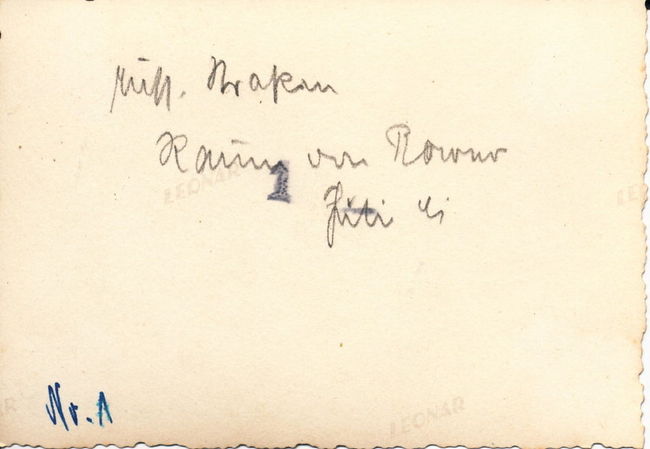 russ. Straßen
Raum von Rowno
1
Juli 41
LEONAR
LEONAR
Nr. 1